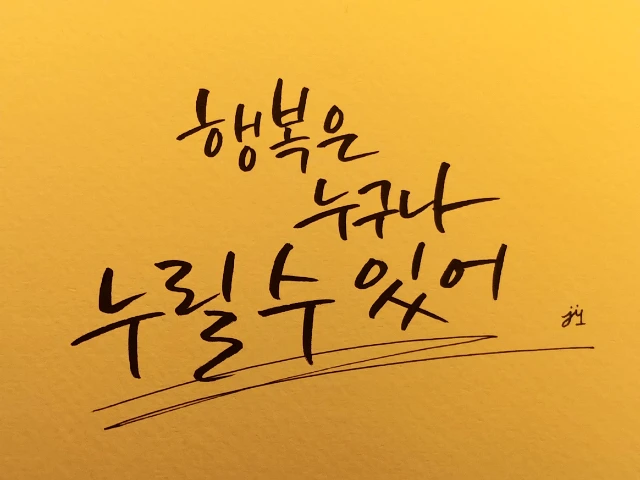 행복은
누구나
누릴 수 있어